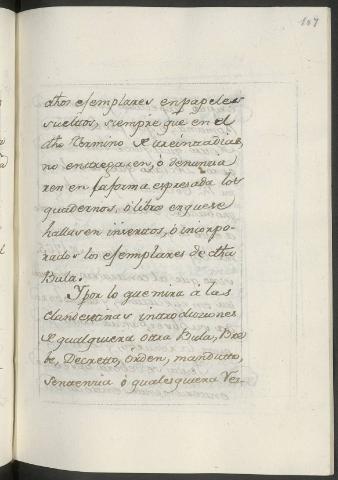 107
dhos exemplares en papeles
sueltos, siempre que en el
dho termino de treinta dias
no entregaren, ò denuncia
ren en la forma expresada los
quadernos, ò libros en que se
hallasen insertos, ò incorpo-
rados los exemplares de dha
Bula.
Y por lo que mira à las
Clandestinas introducciones
de qualquiera otra Bula, Bre
be, Decretto, òrden, mandatto,
sentencia ò qualesquiera Res-